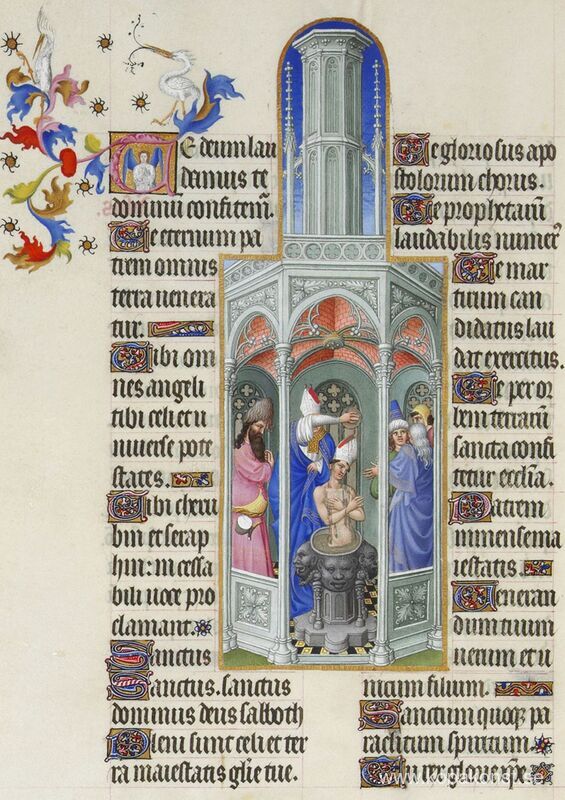 Te deum lau
damus te
dominū confitem̄.
Te eternum pa
trem omnis
terra uenera
tur.
Tibi om
nes angeli
tibi celi et u
niuerse pote
states.
Tibi cheru
bin et serap
hin: incessa
bili uoce pro
clamant.
Sanctus
Sanctus. sanctus
dominus deus sabaoth
Pleni sunt celi et ter
ra maiestatis glīe tue.
Te gloriosus apo
stolorum chorus.
Te prophetarū
laudabilis numerꝰ
Te mar
tirum can
didatus lau
dat exercitus.
Te per or
bem terrarū
sancta confi
tetur ecclīa.
Patrem
inmense ma
iestatis.
Ueneran
dum tuum
uerum et u
nicum filium.
Sanctum quoqꝫ pa
raclitum spiritum.
Tu rex glorie xp̄e.